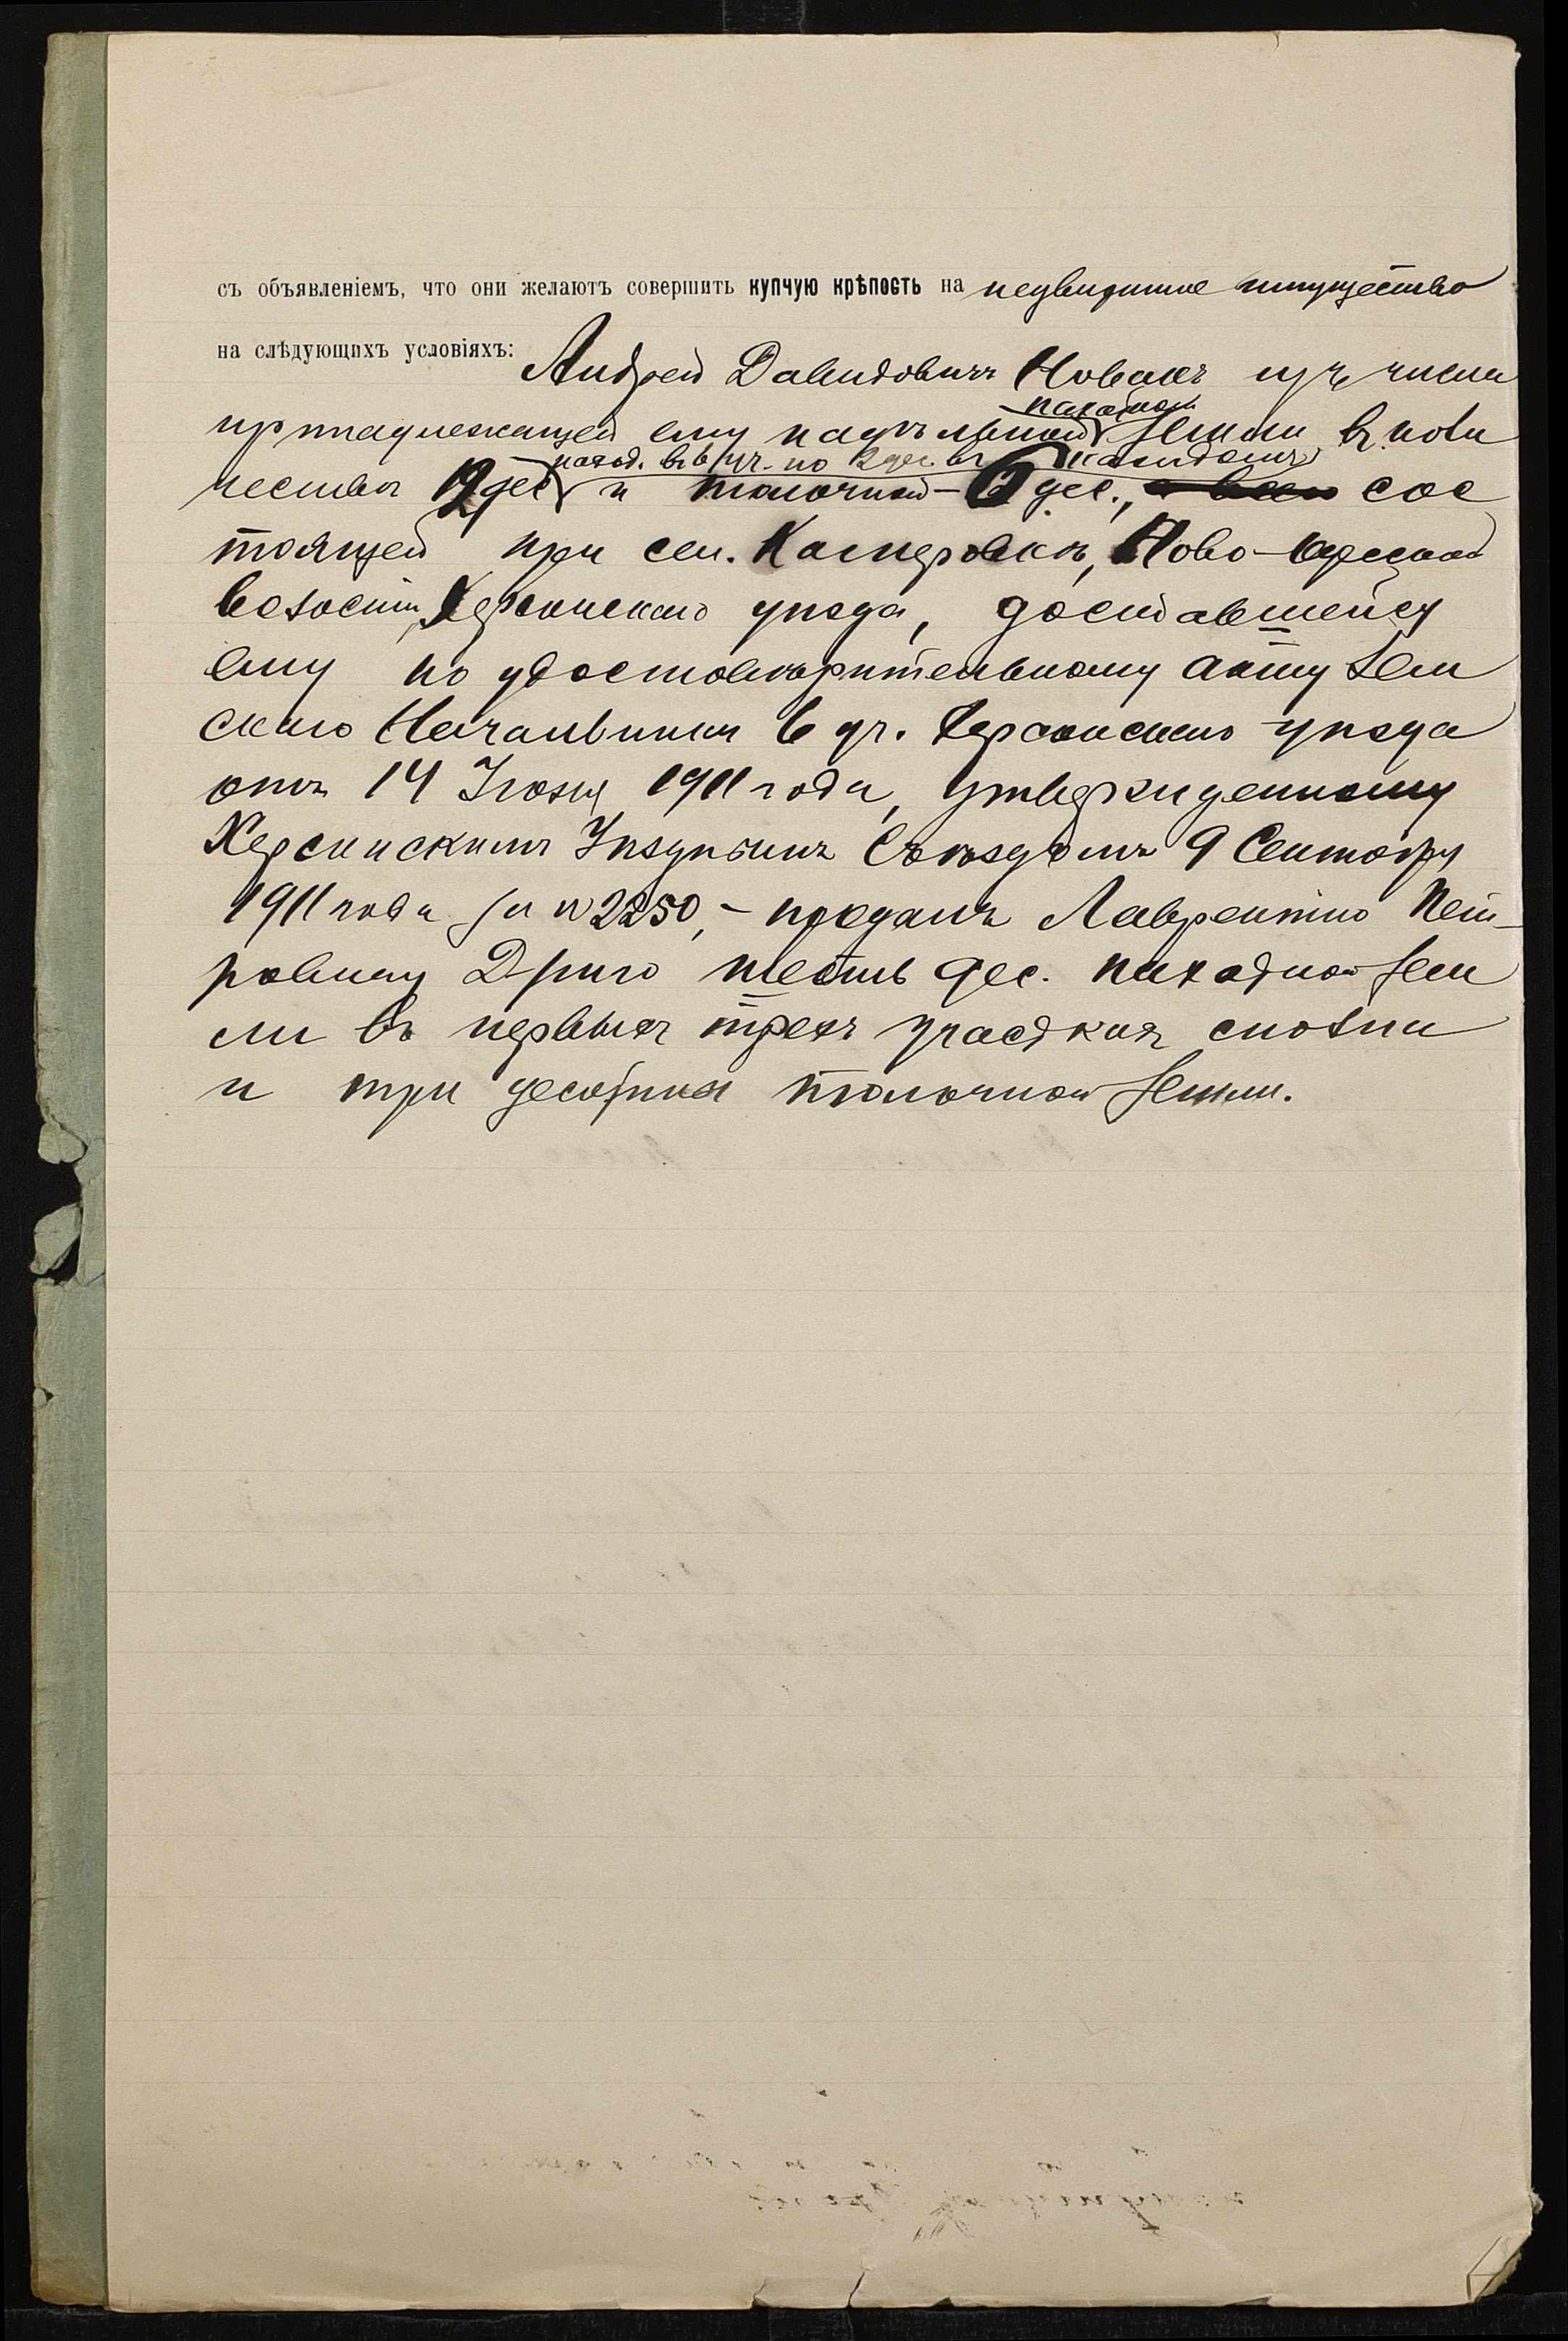 съ объявленіемъ, что они желаютъ совершить купчую крѣпость на недвижимое имущество
на слѣдующихъ условіяхъ: Андрей Давидовичъ Новакъ изъ числа
пахатной
принадлежащей ему надѣльной земли въ коли
наход. въ 6 уч. по 2 дес. въ каждомъ
чествѣ 12 дес. и толочной - 6 дес., а всего сос
тоящей при сел. Касперовкѣ, Ново-Одесской
волости, Херсонскаго уѣзда, доставшейся
ему по удостовѣрительному акту Зем
скаго Начальника 6 уч. Херсонскаго уѣзда
отъ 14 Іюля 1911 года, утвержденному
Херсонскимъ Уѣзднымъ Съѣздомъ 9 Сентября
1911 года за № 2250, - продалъ Лаврентію Пет-
ровичу Дриго шесть дес. пахатной зем
ли въ первыхъ трехъ участкахъ сполна
и три десятины толочной земли.